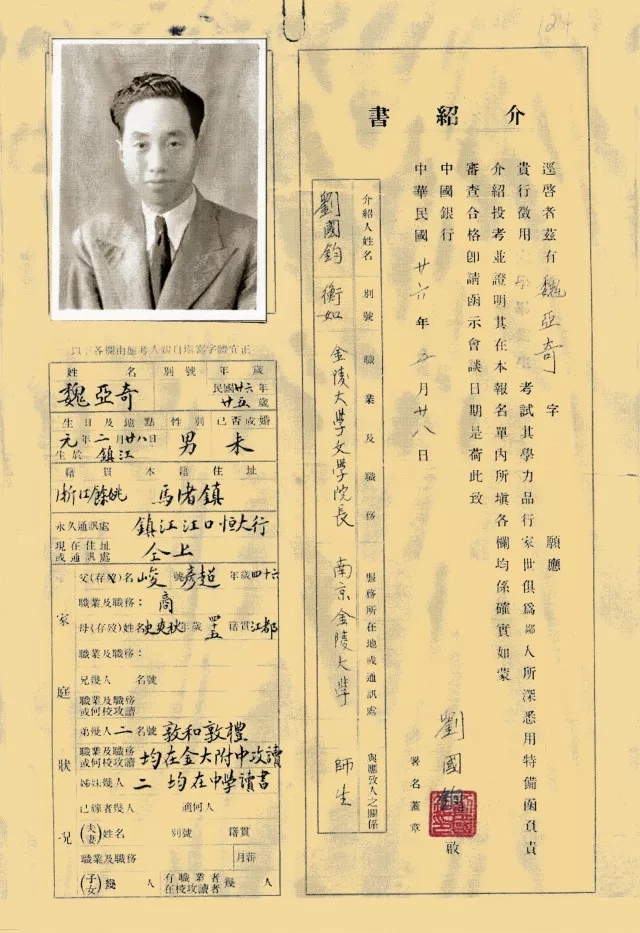 124
介紹書
逕啓者茲有魏亞奇 字 願應
貴行徵用大學畢業生考試其學力品行家世俱爲鄙人所深悉用特備函負責
介紹投考並證明其在本報名單內所塡各欄均係確實如蒙
審查合格卽請函示會談日期是荷此致
中國銀行
劉國鈞 啟
署名蓋章
中華民國廿六年五月廿八日
介紹人姓名 別號 職業及職務 服務所在地或通訊處 與應攷人之關係
劉國鈞 衡如 金陵大學文學院長 南京金陵大學 師生
以下各欄由應考人親自塡寫字體宜正
姓名 別號 年歲
魏亞奇 民國廿六年廿五歲
生日及地點 性別 已否成婚
元年二月廿八日生於鎮江 男 未
籍貫 本籍住址
浙江餘姚 馬渚鎮
永久通訊處 鎮江江口恒大行
現在住址或通訊處 仝上
家庭狀況
父(存歿)名峻 號彥超 年歲四十六
職業及職務：商
母(存歿)姓名史爽秋 年歲四十五 籍貫江都
職業及職務：
兄幾人 名號
職業及職務或何校攻讀
弟幾人二 名號 敦和敦禮
職業及職務或何校攻讀 均在金大附中攻讀
姊妹幾人 二 均在中學讀書
已嫁者幾人 適何人
(夫妻)姓名 別號 籍貫
職業及職務 月薪
(子女)幾人 有職業者在校攻讀者幾人